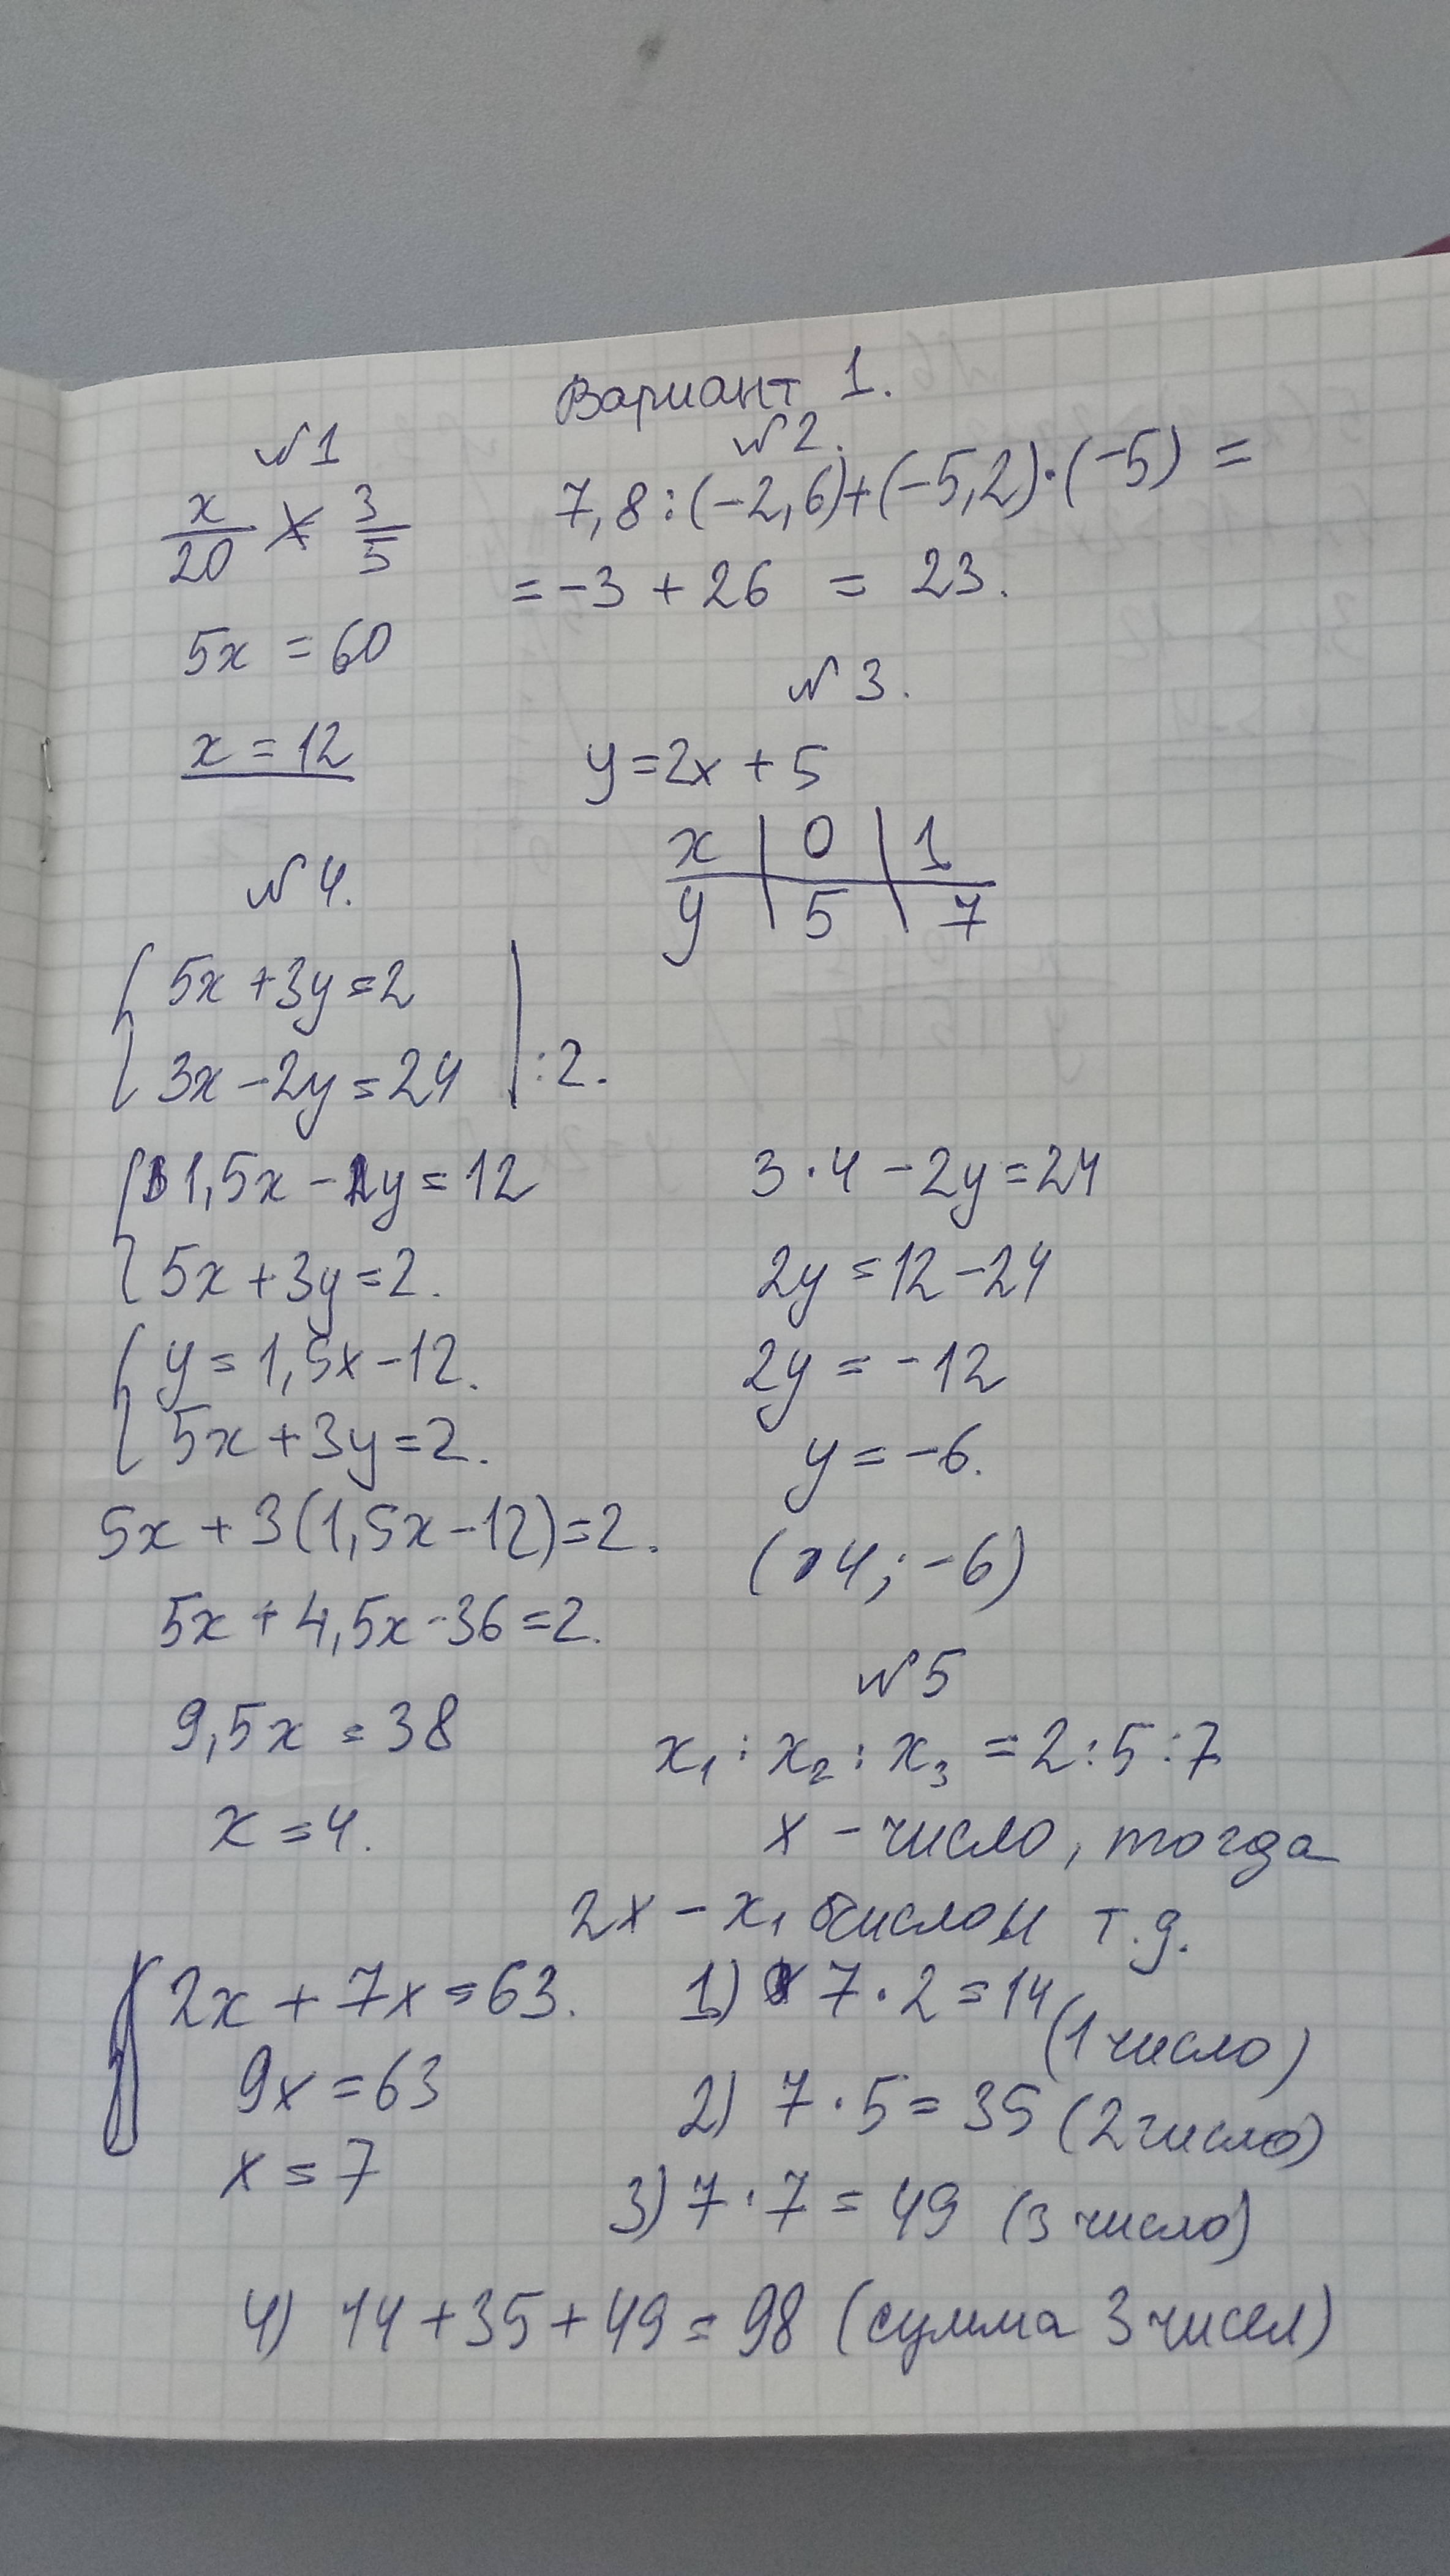 Вариант 1.
№1
x/20 = 3/5
5x = 60
x = 12
№2.
7,8:(-2,6)+(-5,2)·(-5) =
= -3 + 26 = 23.
№ 3.
y=2x + 5
x | 0 | 1
y | 5 | 7
№ 4.
5x + 3y = 2
3x - 2y = 24 | :2.
1,5x - 1y = 12
5x + 3y = 2.
y = 1,5x - 12.
5x + 3y = 2.
5x + 3(1,5x - 12) = 2.
5x + 4,5x - 36 = 2.
9,5x = 38
x = 4.
3·4 - 2y = 24
2y = 12 - 24
2y = -12
y = -6.
(4; -6)
№5
x₁ : x₂ : x₃ = 2:5:7
x - число, тогда
2x - x₁ число и т.д.
2x + 7x = 63.
9x = 63
x = 7
1) 7·2 = 14 (1 число)
2) 7·5 = 35 (2 число)
3) 7·7 = 49 (3 число)
4) 14 + 35 + 49 = 98 (сумма 3 чисел)